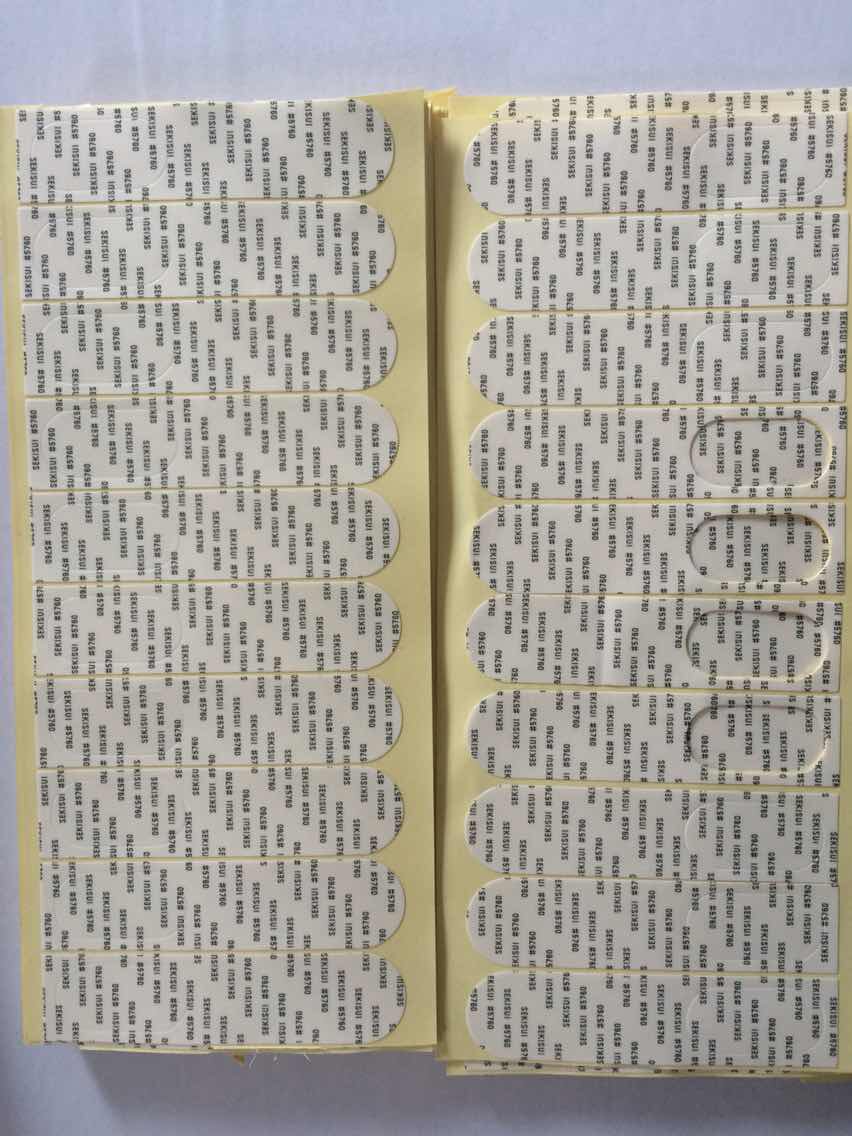 SEKISUI #5760